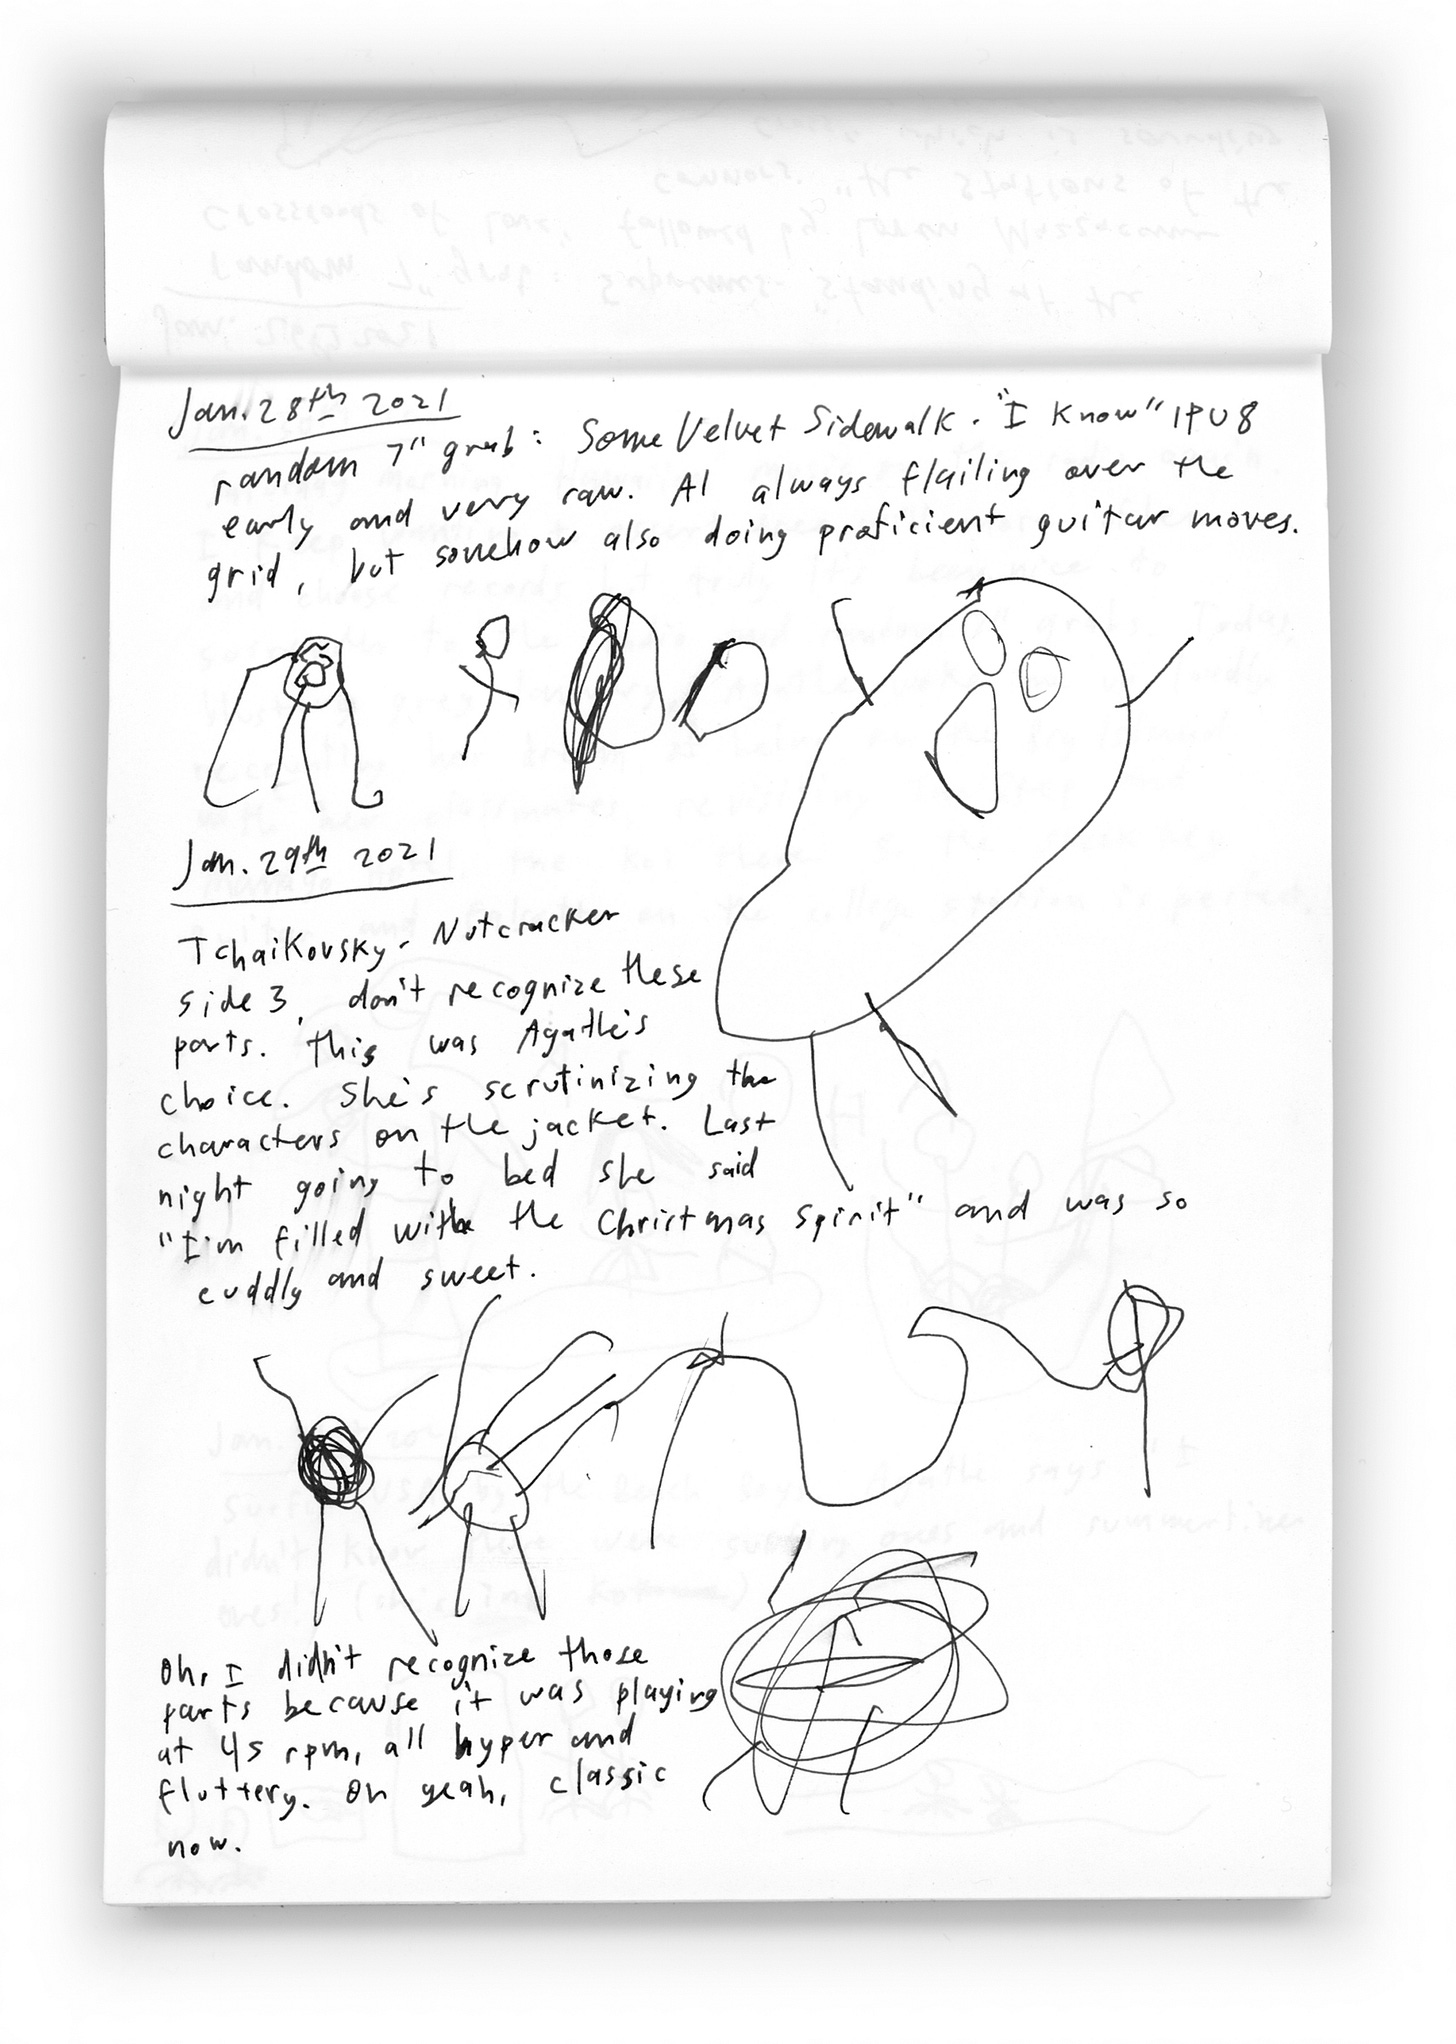 Jan. 28th 2021
random 7" grab: Some Velvet Sidewalk. "I Know" IPU8
early and very raw. Al always flailing over the
grid, but somehow also doing proficient guitar moves.
Jan. 29th 2021
Tchaikovsky - Nutcracker
side 3, don't recognize these
parts. This was Agathe's
choice. She's scrutinizing the
characters on the jacket. Last
night going to bed she said
"I'm filled with the Christmas spirit" and was so
cuddly and sweet.
Oh, I didn't recognize those
parts because it was playing
at 45 rpm, all hyper and
fluttery. Oh yeah, classic
now.